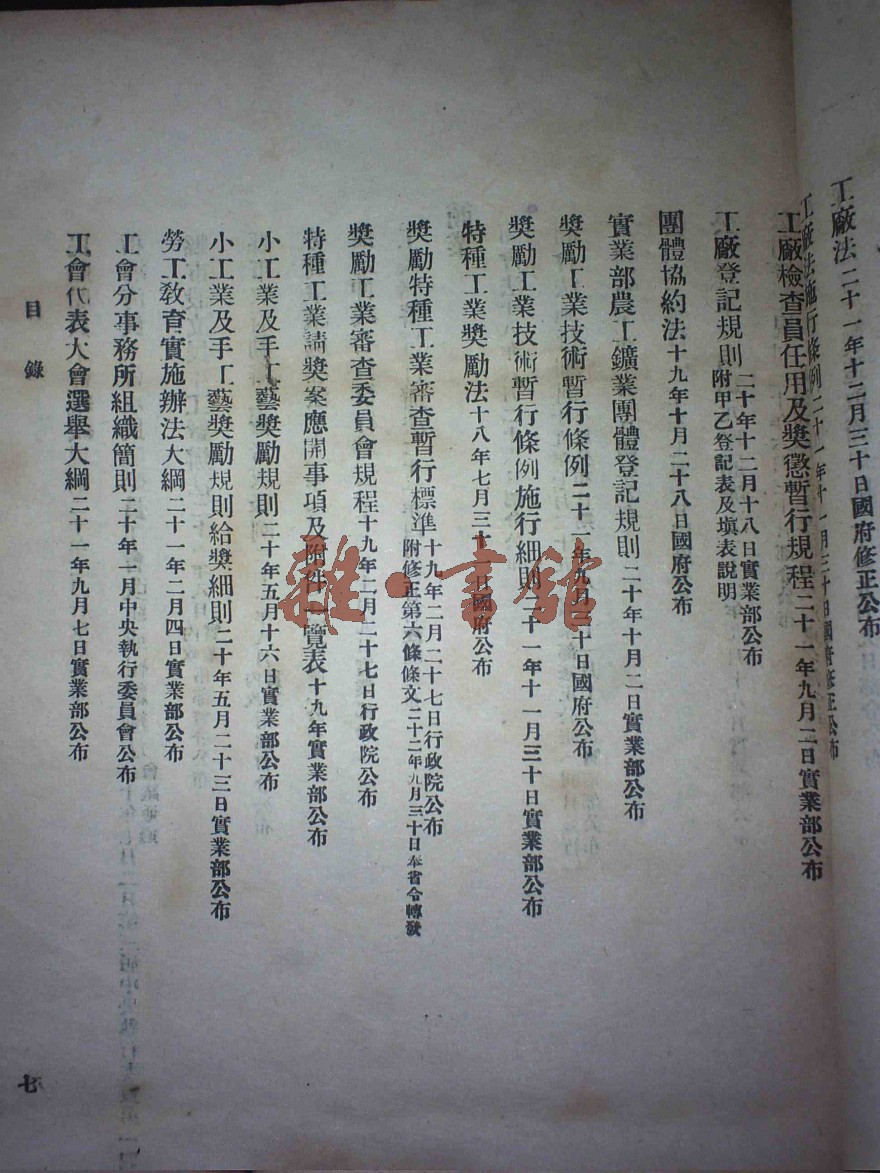 工廠法二十一年十二月三十日國府修正公布
工廠法施行條例二十一年十二月三十日國府修正公布
工廠檢查員任用及獎懲暫行規程二十一年九月二日實業部公布
工廠登記規則二十年十二月十八日實業部公布
附甲乙登記表及填表說明
團體協約法十九年十月二十八日國府公布
實業部農工鑛業團體登記規則二十年十月二日實業部公布
獎勵工業技術暫行條例二十一年九月三十日國府公布
獎勵工業技術暫行條例施行細則二十一年十一月三十日實業部公布
特種工業獎勵法十八年七月三十一日國府公布
獎勵特種工業審查暫行標準十九年二月二十七日行政院公布
附修正第六條條文二十二年九月三十日奉省令轉發
獎勵工業審查委員會規程十九年二月二十七日行政院公布
特種工業請獎案應開事項及附件一覽表十九年實業部公布
小工業及手工藝獎勵規則二十年五月十六日實業部公布
小工業及手工藝獎勵規則給獎細則二十年五月二十三日實業部公布
勞工敎育實施辦法大綱二十一年二月四日實業部公布
工會分事務所組織簡則二十年一月中央執行委員會公布
工會代表大會選舉大綱二十一年九月七日實業部公布
目錄
七
雜·書館